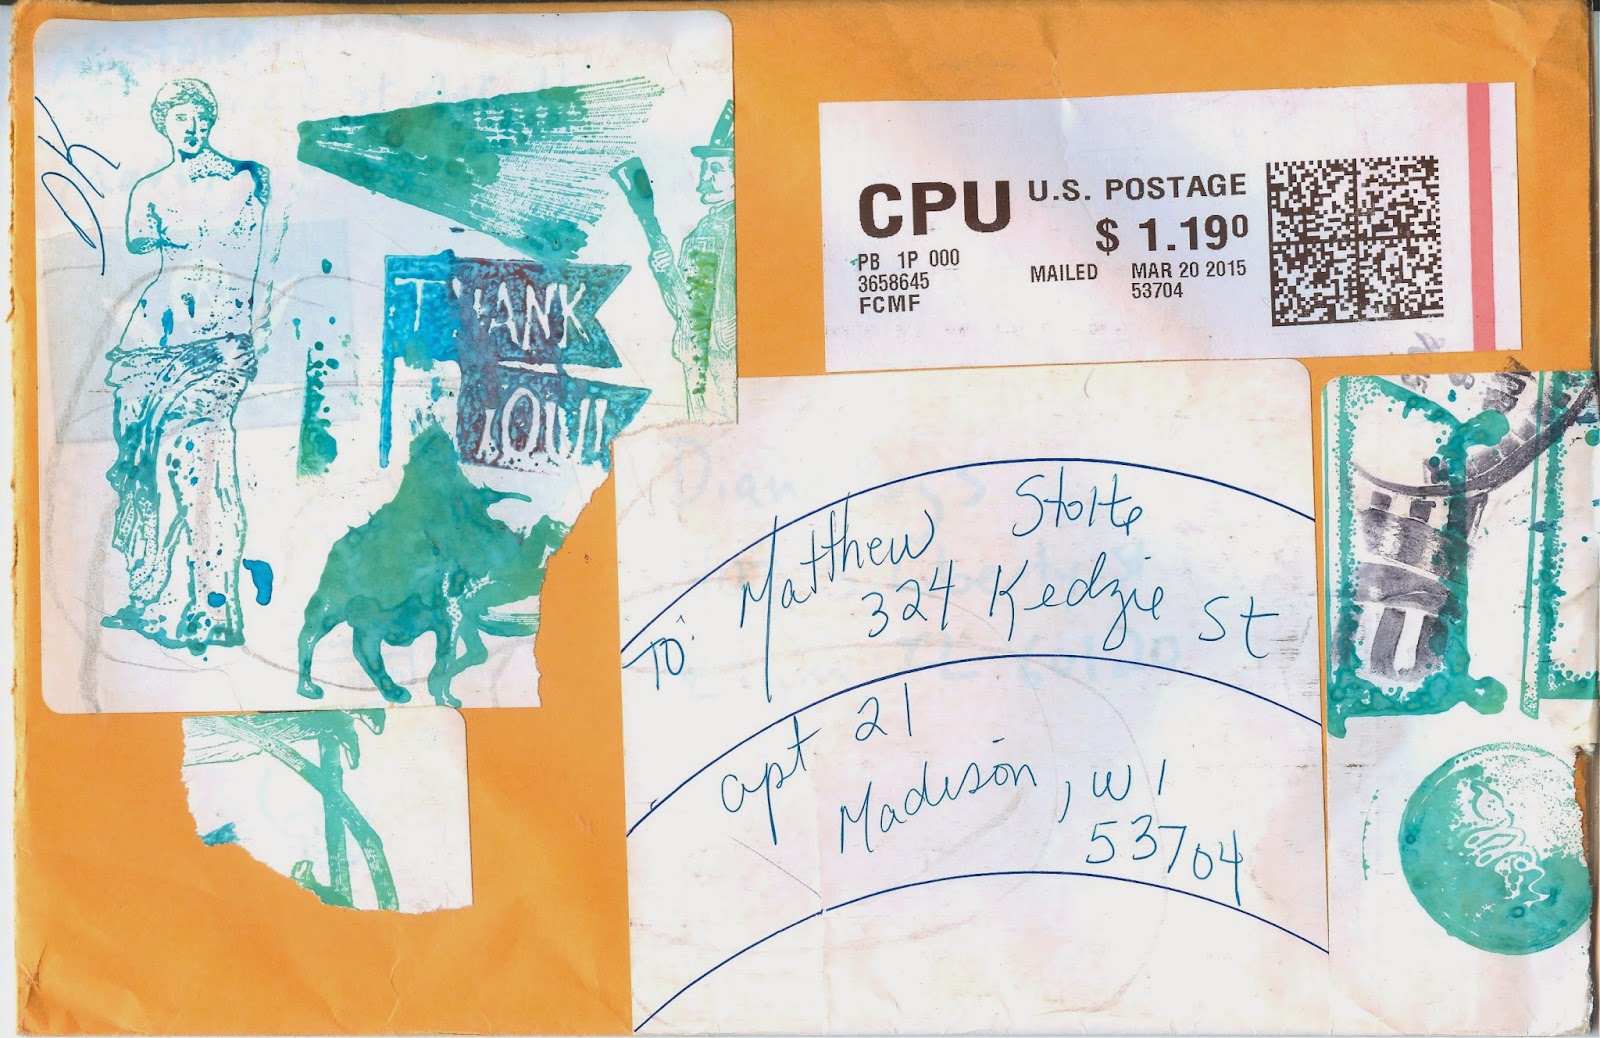 DK
THANK
YOU!
CPU
U.S. POSTAGE
$ 1.19⁰
PB 1P 000
3658645
FCMF
MAILED MAR 20 2015
53704
To: Matthew Stolte
324 Kedzie St
apt 21
Madison, WI
53704